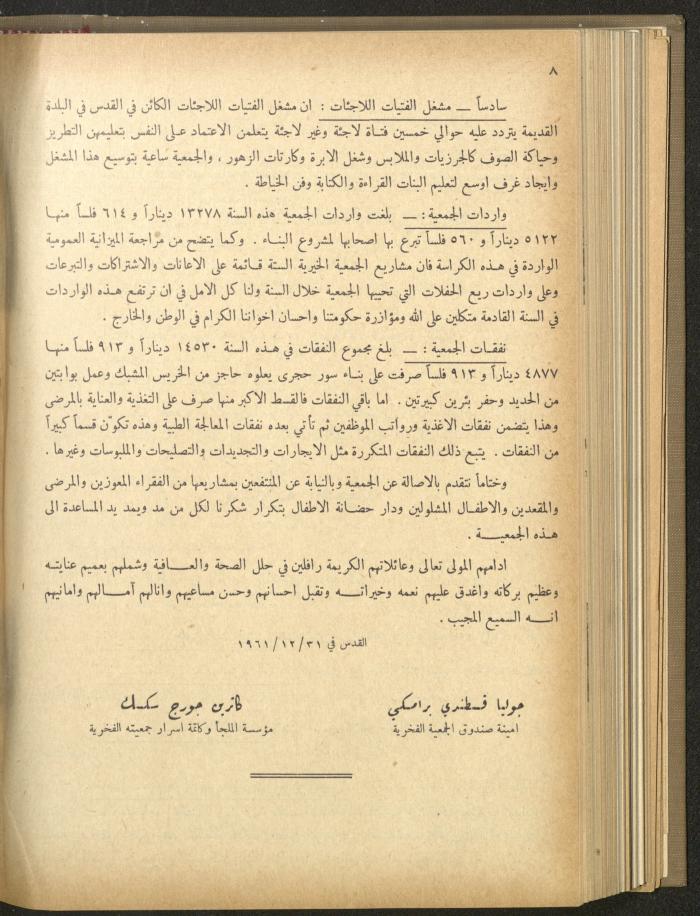 ٨
سادساً — مشغل الفتيات اللاجئات : ان مشغل الفتيات اللاجئات الكائن في القدس في البلدة
القديمة يتردد عليه حوالي خمسين فتاة لاجئة وغير لاجئة يتعلمن الاعتماد على النفس بتعليمهن التطريز
وحياكة الصوف كالجرزيات والملابس وشغل الابرة وكارتات الزهور ، والجمعية ساعية بتوسيع هذا المشغل
وايجاد غرف اوسع لتعليم البنات القراءة والكتابة وفن الخياطة .
واردات الجمعية : — بلغت واردات الجمعية هذه السنة ١٣٢٧٨ ديناراً و ٦١٤ فلساً منها
٥١٢٢ ديناراً و ٥٦٠ فلساً تبرع بها اصحابها لمشروع البناء . وكما يتضح من مراجعة الميزانية العمومية
الواردة في هذه الكراسة فان مشاريع الجمعية الخيرية الستة قائمة على الاعانات والاشتراكات والتبرعات
وعلى واردات ريع الحفلات التي تحييها الجمعية خلال السنة ولنا كل الامل في ان ترتفع هذه الواردات
في السنة القادمة متكلين على الله ومؤازرة حكومتنا واحسان اخواننا الكرام في الوطن والخارج .
نفقات الجمعية : — بلغ مجموع النفقات في هذه السنة ١٤٥٣٠ ديناراً و ٩١٣ فلساً منها
٤٨٧٧ ديناراً و ٩١٣ فلساً صرفت على بناء سور حجرى يعلوه حاجز من الخريس المشبك وعمل بوابتين
من الحديد وحفر بئرين كبيرتين . اما باقي النفقات فالقسط الاكبر منها صرف على التغذية والعناية بالمرضى
وهذا يتضمن نفقات الاغذية ورواتب الموظفين ثم تأتي بعده نفقات المعالجة الطبية وهذه تكوّن قسماً كبيراً
من النفقات . يتبع ذلك النفقات المتكررة مثل الايجارات والتجديدات والتصليحات والملبوسات وغيرها .
وختاماً نتقدم بالاصالة عن الجمعية وبالنيابة عن المنتفعين بمشاريعها من الفقراء المعوزين والمرضى
والمقعدين والاطفال المشلولين ودار حضانة الاطفال بتكرار شكرنا لكل من مد ويمد يد المساعدة الى
هذه الجمعيـــة .
ادامهم المولى تعالى وعائلاتهم الكريمة رافلين في حلل الصحة والعـافية وشملهم بعميم عنايته
وعظيم بركاته واغدق عليهم نعمه وخيراته وتقبل احسانهم وحسن مساعيهم وانالهم آمالهم وامانيهم
انه السميع المجيب .
القدس في ٣١/ ١٢/ ١٩٦١
جوليا قسطندي برامكي
امينة صندوق الجمعية الفخرية
كاترين جورج سكسك
مؤسسة الملجأ وكاتمة اسرار جمعيته الفخرية